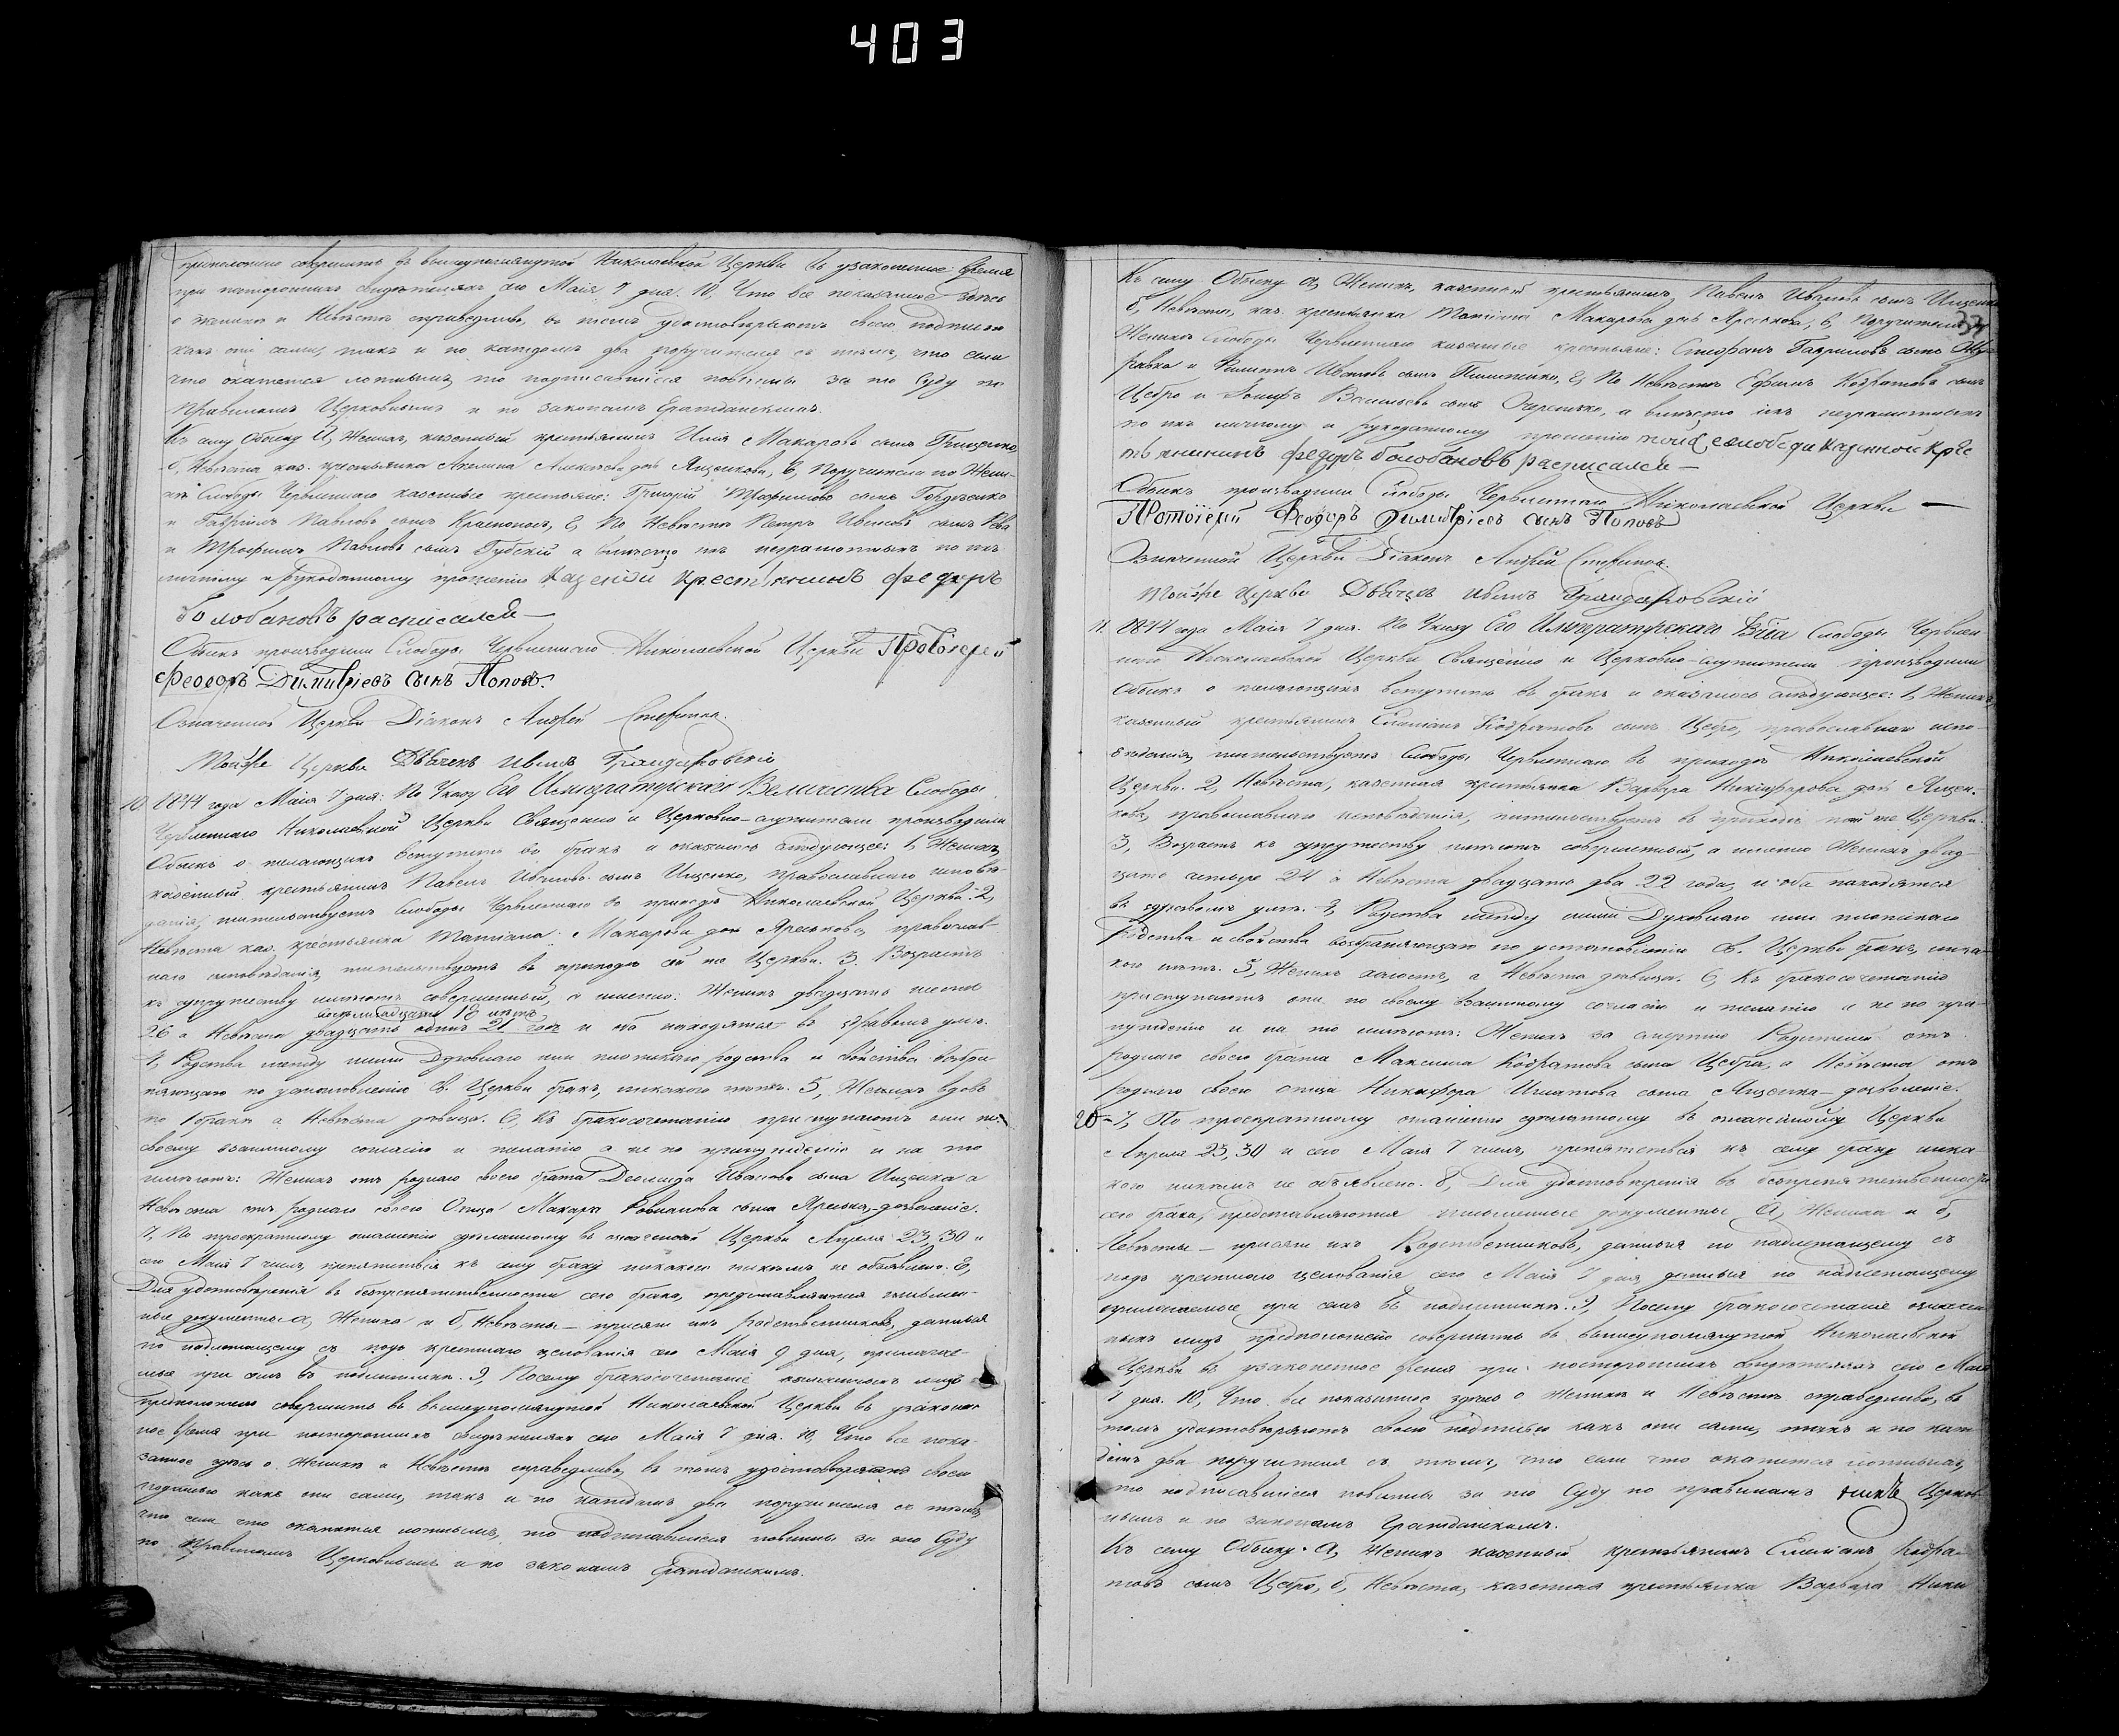 403
предположено совершить въ вышеупомянутой Николаевской Церкви въ узаконенное время
при постороннихъ свидѣтеляхъ сего Маія 7 дня. 10, Что все показанное здѣсь
о женихѣ и Невѣстѣ справедливо, въ томъ удостовѣряютъ своею подписью
какъ они сами, такъ и по каждомъ два поручителя съ тѣмъ, что если
что окажется ложнымъ, то подписавшіеся повинны за то Суду по
Правиламъ Церковнымъ и по законамъ Гражданскимъ.
Къ сему Обыску а, Женихъ, казенный крестьянинъ Илія Макаровъ сынъ Грищенко,
б, Невѣста каз. крестьянка Акилина Алексѣева дочь Ященкова, в, Поручители по Жени-
хѣ Слободы Червленнаго казенные крестьяне: Григорій Трофимовъ сынъ Гордѣенко
и Гавріилъ Павловъ сынъ Краснокол, г, По Невѣстѣ Петръ Ивановъ сынъ Рева
и Трофимъ Павловъ сынъ Губскій а вмѣсто ихъ неграмотныхъ по ихъ
личному и рукоданному прошенію казеной крестьянинъ федоръ
Болобановъ расписался —
Обыскъ производили Слободы Червленнаго Николаевской Церкви Протоіерей
Феодоръ Димитріевъ сынъ Поповъ.
Означенной Церкви Діаконъ Андрей Стефановъ.
Той же Церкви Дьячекъ Иванъ
10. 1844 года Маія 7 дня: По Указу Его Императорскаго Величества Слободы
Червленнаго Николаевской Церкви Священно и Церковно-служители производили
Обыскъ о желающихъ вступить въ бракъ и оказалось слѣдующее: 1, Женихъ,
казенный крестьянинъ Павелъ Ивановъ сынъ Ищенко, православнаго исповѣ-
данія, жительствуетъ Слободы Червленнаго въ приходѣ Николаевской Церкви. 2,
Невѣста каз. крестьянка Татіана Макарова дочь Ярешкова, православ-
наго исповѣданія, жительствуетъ въ приходѣ той же Церкви. 3. Возрастъ
къ супружеству имѣютъ совершенный, а именно: Женихъ двадцать шесть
восьмнадцать 18 лѣтъ
26 а Невѣста двадцать одинъ 21 годъ и оба находятся въ здравомъ умѣ.
4, Родства между ними Духовнаго или плотскаго родства и свойства возбра-
няющаго по установленію Св. Церкви бракъ, никакого нѣтъ. 5, Женихъ вдовъ
по 1 бракѣ а Невѣста дѣвица. 6, Къ бракосочетанію приступаютъ они по
своему взаимному согласію и желанію а не по принужденію и на то
имѣютъ: Женихъ отъ роднаго своего брата Леонида Иванова сына Ищенка а
Невѣста отъ роднаго своего Отца Макара сына Ярешка,-дозволеніе.
7, По троекратному оглашенію сдѣланному въ означенной Церкви Апреля 23, 30 и
сего Маія 7 числъ, препятствія къ сему браку никакого никѣмъ не объявлено. 8,
Для удостовѣренія въ безпрепятственности сего брака, представляются письмен-
ные документы: а, Жениха и б, Невѣсты — присяги ихъ родственниковъ, данныя
по надлежащему съ подъ крестнаго цѣлованія сего Маія 9 дня, прилагае-
мые при семъ въ подлинникѣ. 9, Посему бракосочетаніе означенныхъ лицъ
предположено совершить въ вышеупомянутой Николаевской Церкви въ узаконен-
ное время при постороннихъ свидѣтеляхъ сего Маія 7 дня. 10, Что все пока-
занное здѣсь о Женихѣ и Невѣстѣ справедливо, въ томъ удостовѣряютъ своею
подписью какъ они сами, такъ и по каждомъ два поручителя съ тѣмъ,
что если что окажется ложнымъ, то подписавшіеся повинны за то Суду
по Правиламъ Церковнымъ и по законамъ Гражданскимъ.
Къ сему Обыску а, Женихъ, казенный крестьянинъ Павелъ Ивановъ сынъ Ищенко
б, Невѣста, каз. крестьянка Татіана Макарова дочь Ярешкова, в, Поручители по
Женихѣ Слободы Червленнаго казенные крестьяне: Стефанъ Гавриловъ сынъ
и Филиппъ Ивановъ сынъ, г, По Невѣстѣ Ефимъ Кодратовъ сынъ
Цебро и Василіевъ сынъ Очеретько, а вмѣсто ихъ неграмотныхъ
по ихъ личному и рукоданному прошенію той слободи казеной кре
стьянинъ федоръ болобановъ расписался —
Обыскъ производили Слободы Червленнаго Николаевской Церкви —
Протоіерей Феодоръ Димитріевъ сынъ Поповъ
Означенной Церкви Діаконъ Андрей Стефановъ.
Той же Церкви Дьячекъ Иванъ
11. 1844 года Маія 7 дня. По Указу Его Императорскаго Вѣла Слободы Червлен
наго Николаевской Церкви Священно и Церковно-служители производили
Обыскъ о желающихъ вступить въ бракъ и оказалось слѣдующее: 1, Женихъ,
казенный крестьянинъ Емеліанъ Кодратовъ сынъ Цебро, православнаго испо-
вѣданія, жительствуетъ Слободы Червленнаго въ приходѣ Николаевской
Церкви. 2, Невѣста, казенная крестьянка Варвара Никифорова дочь Ящен-
кова, православнаго исповѣданія, жительствуетъ въ приходѣ той же Церкви.
3, Возрастъ къ супружеству имѣютъ совершенный, а именно Женихъ двад-
цать четыре 24 а Невѣста двадцать два 22 года, и оба находятся
въ здравомъ умѣ. 4, Родства между ними Духовнаго или плотскаго
родства и свойства возбраняющаго по установленію Св. Церкви бракъ, ника-
кого нѣтъ. 5, Женихъ холостъ, а Невѣста дѣвица. 6, Къ бракосочетанію
приступаютъ они по своему взаимному согласію и желанію а не по при-
нужденію и на то имѣютъ: Женихъ за смертію Родителей отъ
роднаго своего брата Максима Кодратова сына Цебра, а Невѣста отъ
роднаго своего отца Никифора Игнатова сына Ященка-дозволеніе.
7, По троекратному оглашенію сдѣланному въ означенной Церкви
Апреля 23, 30 и сего Маія 7 числъ, препятствія къ сему браку ника
кого никѣмъ не объявлено. 8, Для удостовѣренія въ безпрепятственности
сего брака, представляются письменные документы а, Жениха и б,
Невѣсты — присяги ихъ Родственниковъ, данныя по надлежащему съ
подъ крестнаго цѣлованія сего Маія 7 дня данныя по надлежащему
прилагаемые при семъ въ подлинникѣ. 9, Посему бракосочетаніе означен
ныхъ лицъ предположено совершить въ вышеупомянутой Николаевской
Церкви въ узаконенное время при постороннихъ свидѣтеляхъ сего Маія
7 дня. 10, Что все показанное здѣсь о Женихѣ и Невѣстѣ справедливо, въ
томъ удостовѣряютъ своею подписью какъ они сами, такъ и по каж
домъ два поручителя съ тѣмъ, что если что окажется ложнымъ,
то подписавшіеся повинны за то Суду по правиламъ Церков
нымъ и по законамъ Гражданскимъ.
Къ сему Обыску. а, Женихъ казенный крестьянинъ Емеліанъ Кодра-
товъ сынъ Цебро, б, Невѣста, казенная крестьянка Варвара Ники